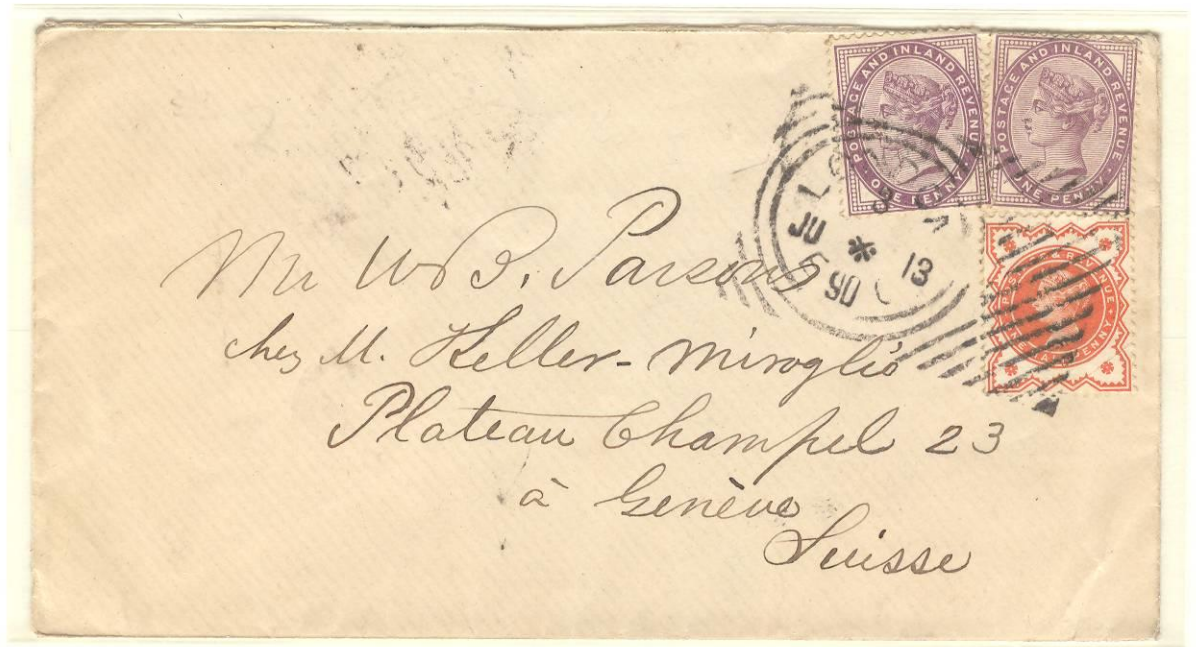 POSTAGE AND INLAND REVENUE
ONE PENNY
POSTAGE AND INLAND REVENUE
ONE PENNY
POSTAGE & REVENUE
PENNY
8
JU 13
5 90
Mr W B. Parsons
chez M. Keller-Miroglio
Plateau Champel 23
à Genève
Suisse